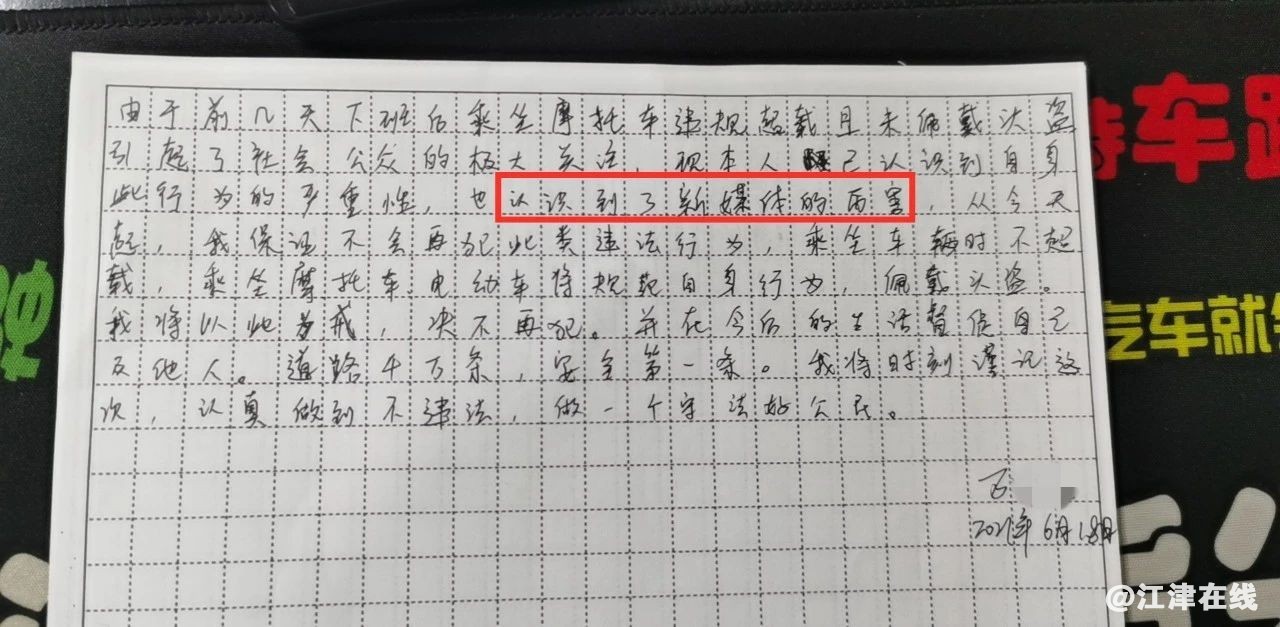 由于前几天下班后乘坐摩托车违规超载且未佩戴头盔
引起了社会公众的极大关注，现本人已认识到自身
此行为的严重性，也认识到了新媒体的厉害，从今天
起，我保证不会再犯此类违法行为，乘坐车辆时不超
载，乘坐摩托车电动车将规范自身行为，佩戴头盔。
我将以此为戒，决不再犯。并在今后的生活督促自己
及他人。道路千万条，安全第一条。我将时刻谨记这
次，认真做到不违法，做一个守法好公民。
2021年6月18日
特车跑
汽车就
@江津在线